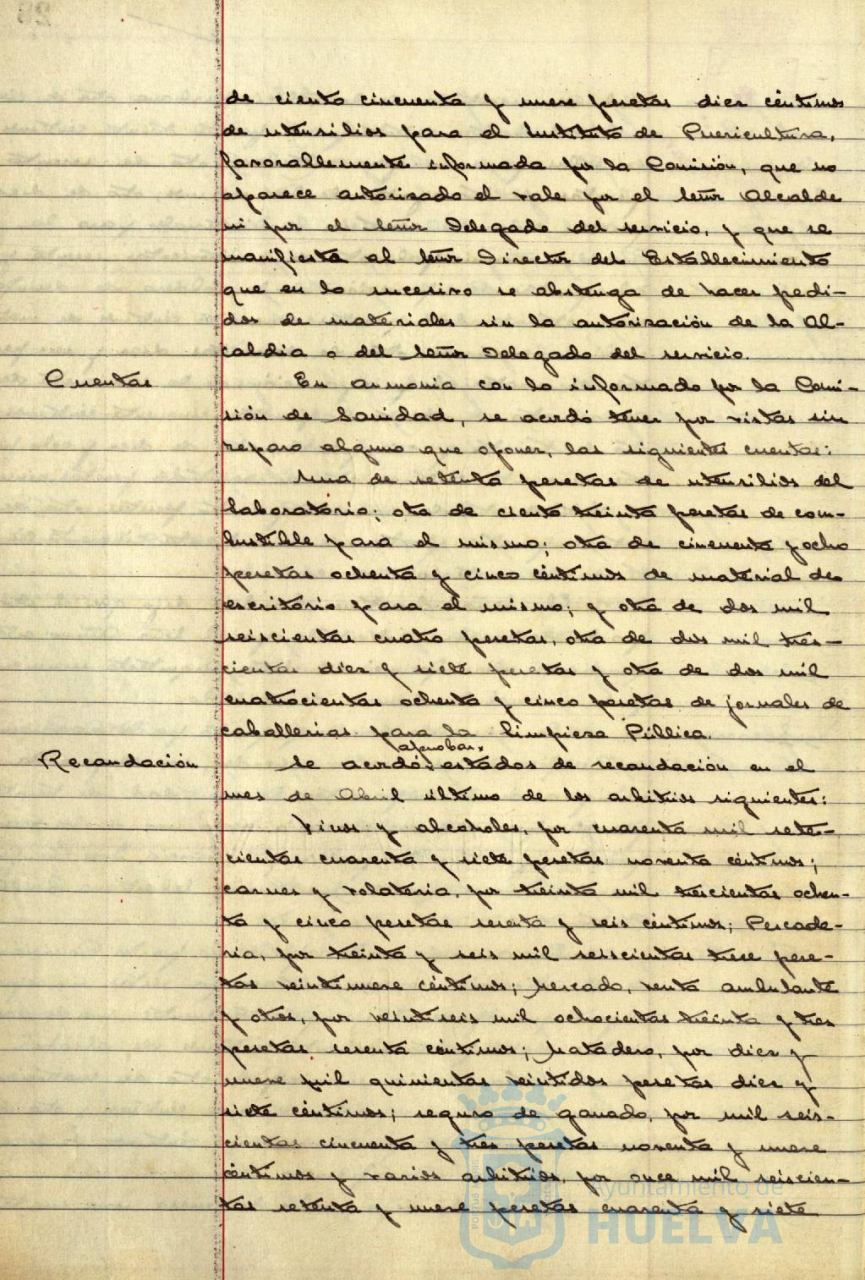 de ciento cincuenta y nueve pesetas diez céntimos
de utensilios para el Instituto de Puericultura,
favorablemente informada por la Comisión, que no
aparece autorizado el vale por el Señor Alcalde
ni por el Señor Delegado del servicio, y que se
manifiesta al Señor Director del Establecimiento
que en lo sucesivo se abstenga de hacer pedi-
dos de materiales sin la autorización de la Al-
caldia o del Señor Delegado del servicio.
Cuentas
En armonia con lo informado por la Comi-
sión de Sanidad, se acordó tener por vistas sin
reparo alguno que oponer, las siguientes cuentas:
Una de setenta pesetas de utensilios del
laboratorio; otra de ciento treinta pesetas de com-
bustible para el mismo; otra de cincuenta y ocho
pesetas ochenta y cinco céntimos de material de
escritorio para el mismo; y otra de dos mil
seiscientas cuatro pesetas, otra de dos mil tres-
cientas diez y siete pesetas y otra de dos mil
cuatrocientas ochenta y cinco pesetas de jornales de
caballerias para la limpieza Pública.
Recaudación
aprobar
Se acordó estados de recaudación en el
mes de Abril último de los arbitrios siguientes:
Vinos y alcoholes, por cuarenta mil sete-
cientas cuarenta y siete pesetas noventa céntimos;
carnes y volateria, por treinta mil trescientas ochen-
ta y cinco pesetas sesenta y seis céntimos; Pescade-
ria, por treinta y seis mil seiscientas trece pese-
tas veintinueve céntimos; Mercado, venta ambulante
y otros, por veintiseis mil ochocientas treinta y tres
pesetas sesenta céntimos; Matadero, por diez y
nueve mil quinientas veintidos pesetas diez y
siete céntimos; seguro de ganado, por mil seis-
cientas cincuenta y tres pesetas noventa y nueve
céntimos y varios arbitrios, por once mil seiscien-
tas setenta y nueve pesetas cuarenta y siete
Ayuntamiento de
HUELVA